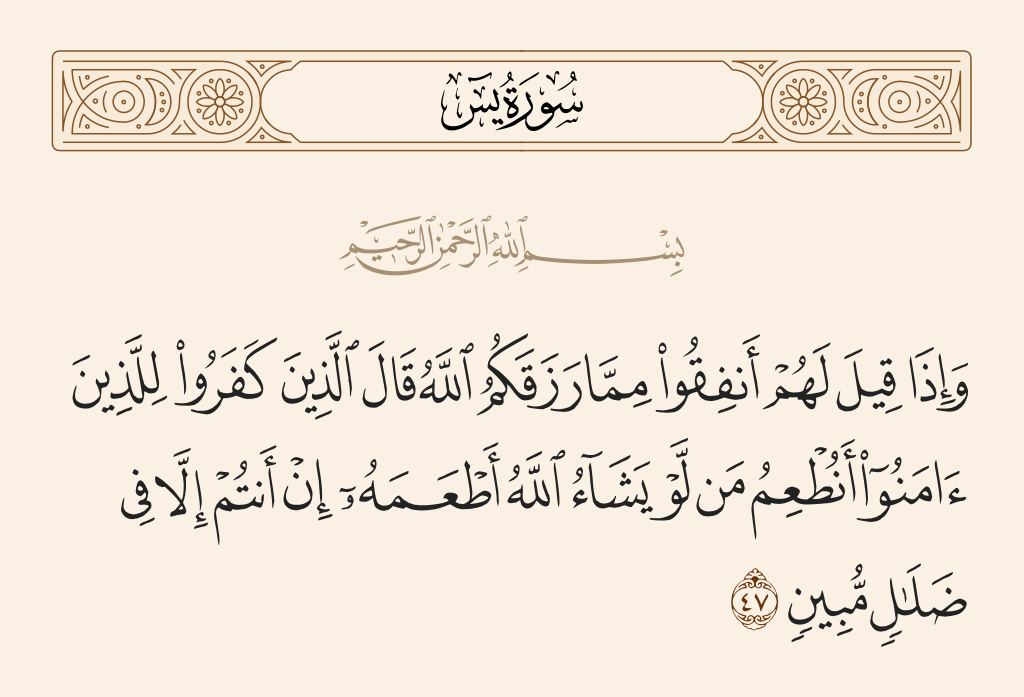 سُورَةُ يسٓ
بِسْمِ ٱللَّهِ ٱلرَّحْمَٰنِ ٱلرَّحِيمِ
وَإِذَا قِيلَ لَهُمْ أَنفِقُوا۟ مِمَّا رَزَقَكُمُ ٱللَّهُ قَالَ ٱلَّذِينَ كَفَرُوا۟ لِلَّذِينَ
ءَامَنُوٓا۟ أَنُطْعِمُ مَن لَّوْ يَشَآءُ ٱللَّهُ أَطْعَمَهُۥٓ إِنْ أَنتُمْ إِلَّا فِى
ضَلَٰلٍ مُّبِينٍ ٤٧